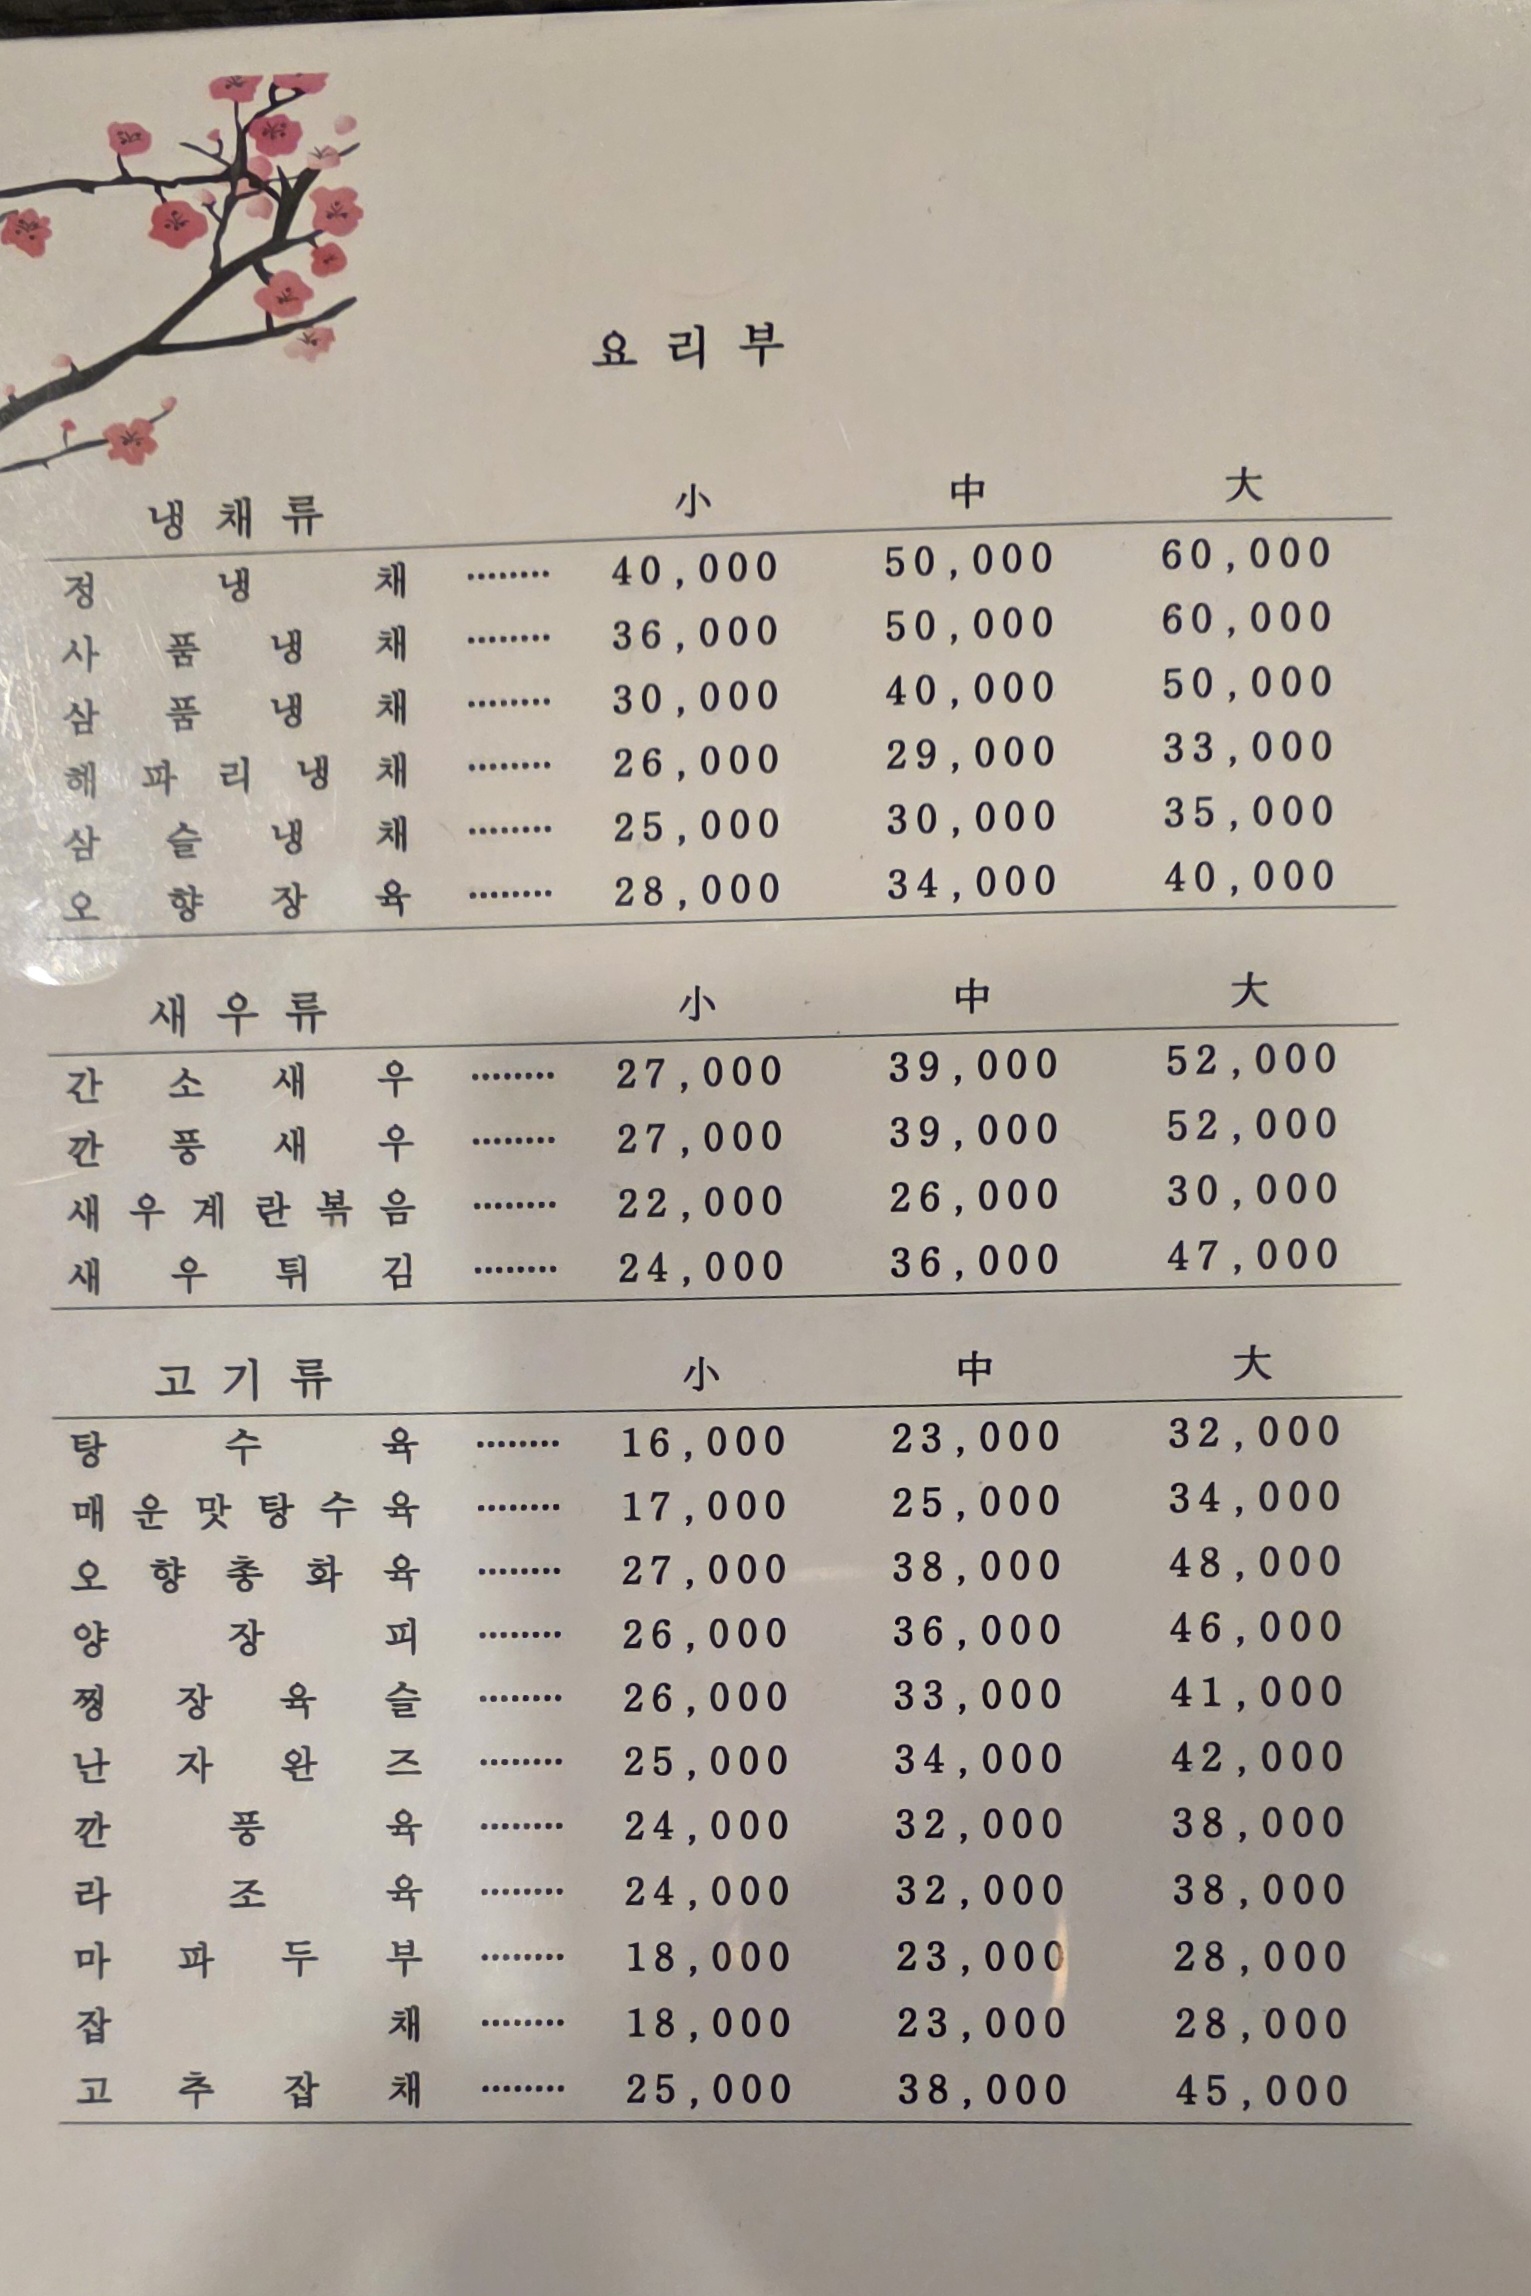 요리부
냉채류 小 中 大
정냉채 ········ 40,000 50,000 60,000
사품냉채 ········ 36,000 50,000 60,000
삼품냉채 ········ 30,000 40,000 50,000
헤파리냉채 ········ 26,000 29,000 33,000
삼슬냉채 ········ 25,000 30,000 35,000
오향장육 ········ 28,000 34,000 40,000
새우류 小 中 大
간소새우 ········ 27,000 39,000 52,000
깐풍새우 ········ 27,000 39,000 52,000
새우계란볶음 ········ 22,000 26,000 30,000
새우튀김 ········ 24,000 36,000 47,000
고기류 小 中 大
탕수육 ········ 16,000 23,000 32,000
매운맛탕수육 ········ 17,000 25,000 34,000
오향총화육 ········ 27,000 38,000 48,000
양장피 ········ 26,000 36,000 46,000
찡장육슬 ········ 26,000 33,000 41,000
난자완즈 ········ 25,000 34,000 42,000
깐풍육 ········ 24,000 32,000 38,000
라조육 ········ 24,000 32,000 38,000
마파두부 ········ 18,000 23,000 28,000
잡채 ········ 18,000 23,000 28,000
고추잡채 ········ 25,000 38,000 45,000